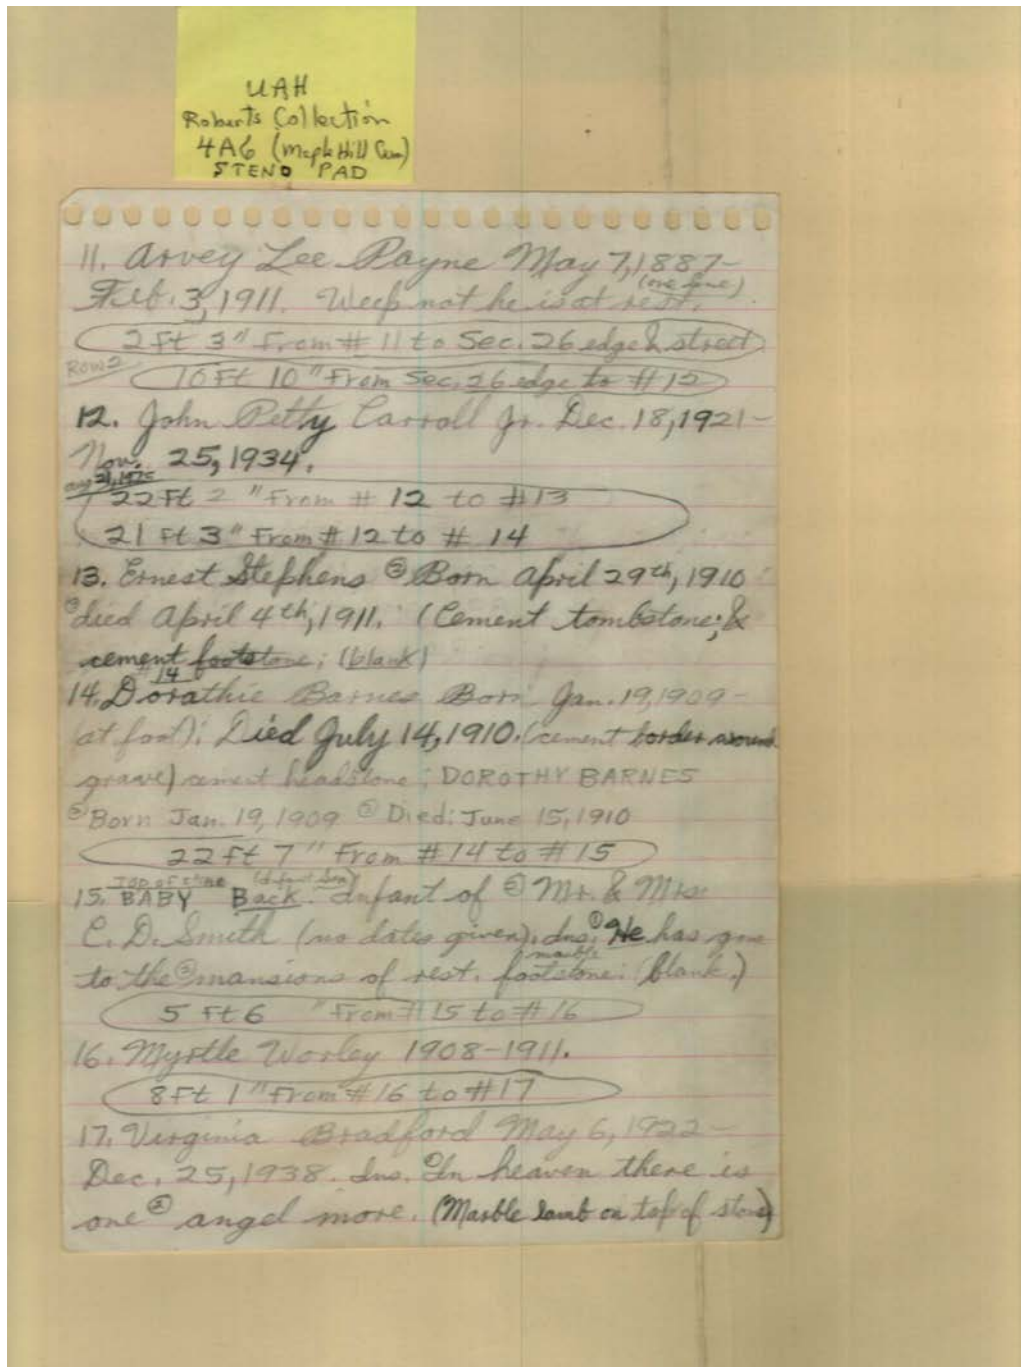 UAH
Roberts Collection
4A6 (Maple Hill Cem)
STENO PAD
11. Arvey Lee Payne May 7, 1887-
(one line)
Feb. 3, 1911. Weep not he is at rest.
2 Ft 3" From # 11 to Sec. 26 edge & street
Row 2
10 Ft 10" From Sec. 26 edge to # 12
12. John Petty Carroll Jr. Dec. 18, 1921-
Nov. 25, 1934.
Aug 21, 1975
22 Ft 2 " From # 12 to #13
21 Ft 3" From # 12 to # 14
13. Ernest Stephens ② Born April 29th, 1910
③ died April 4th, 1911. (Cement tombstone; &
cement footstone; (blank)
#14
14. Dorathie Barnes Born Jan. 19, 1909-
(at foot): Died July 14, 1910. (cement border around
grave) cement headstone; DOROTHY BARNES
② Born Jan. 19, 1909 ③ Died: June 15, 1910
22 Ft 7" From #14 to #15
TOP OF STONE (Infant Son)
15. BABY Back. Infant of ② Mr. & Mrs.
C. D. Smith (no dates given). Ins. ① He has gone
marble
to the ② mansions of rest. footstone: (blank.)
5 Ft 6 " From # 15 to # 16
16. Myrtle Worley 1908-1911.
8 Ft 1" From #16 to #17
17. Virginia Bradford May 6, 1922-
Dec. 25, 1938. Ins. ① In heaven there is
one ② angel more. (Marble lamb on top of stone)